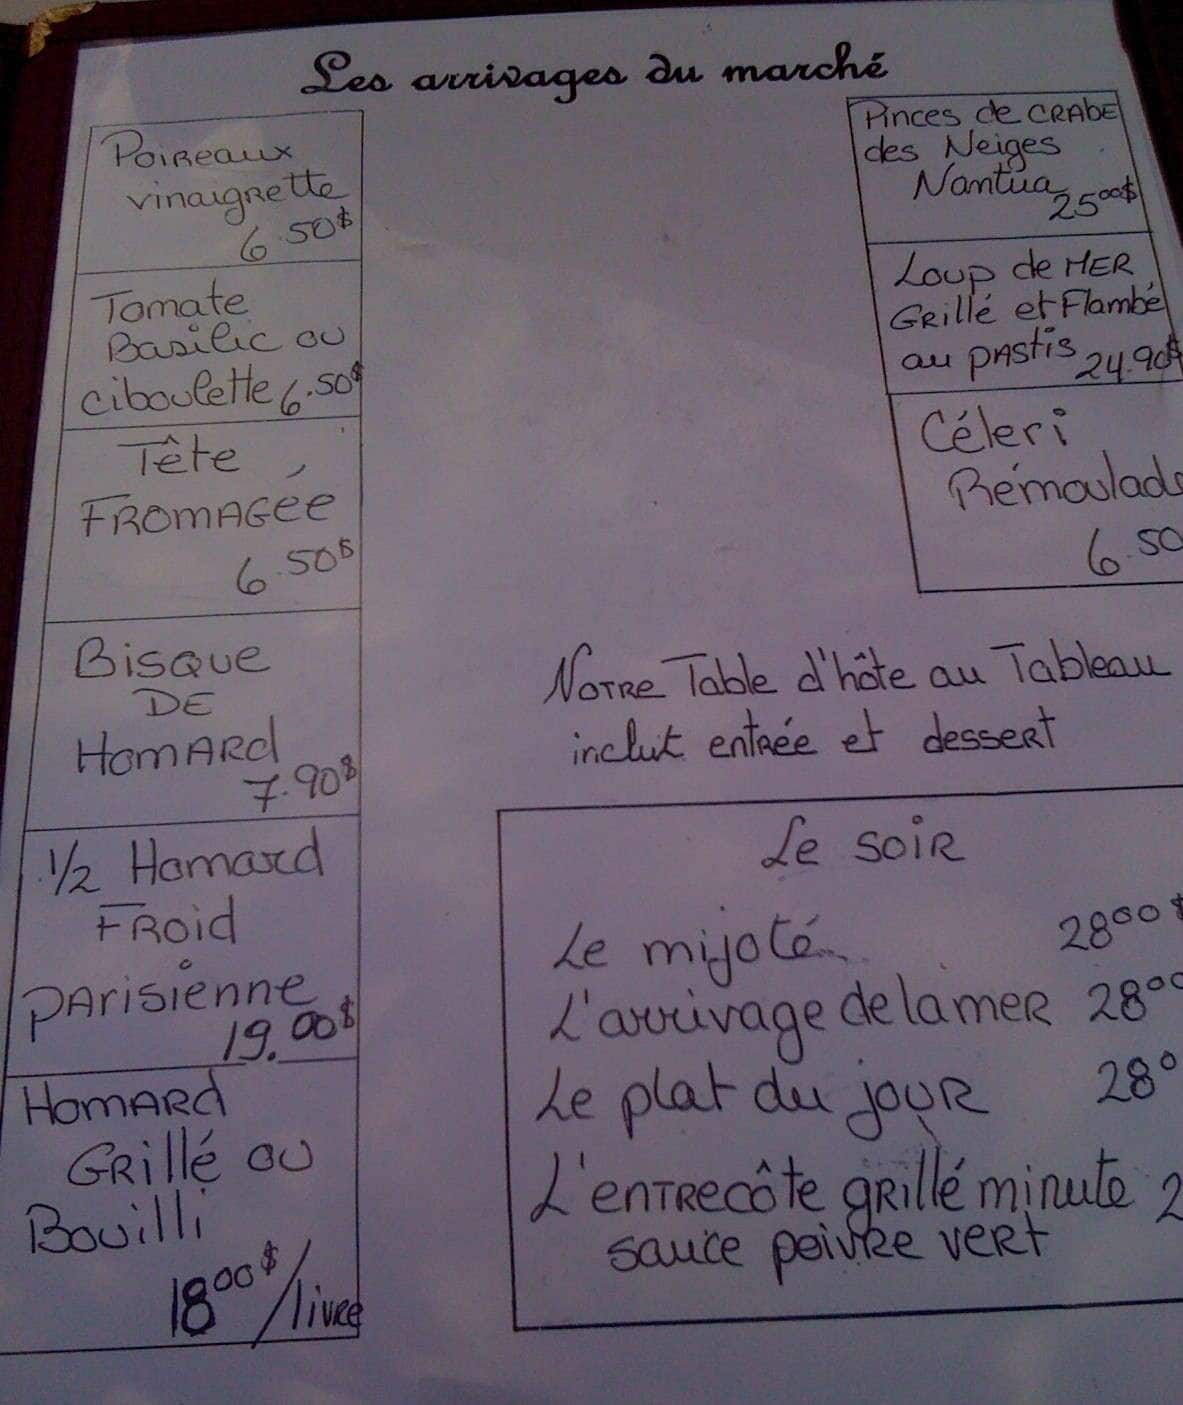 Les arrivages du marché
Poireaux
vinaigrette
6.50$
Tomate
Basilic ou
ciboulette 6.50$
Tête
FROMAGÉE
6.50$
Bisque
DE
Homard
7.90$
1/2 Homard
Froid
Parisienne
19.00$
Homard
Grillé ou
Bouilli
18 00$/livre
Pinces de CRABE
des Neiges
Nantua
25 00$
Loup de MER
Grillé et Flambé
au PASTIS 24.90$
Céleri
Rémoulade
6.50
Notre Table d'hôte au Tableau
inclut entrée et dessert
Le soir
Le mijoté 28 00$
L'arrivage de la mer 28 00
Le plat du jour 28 0
L'entrecôte grillé minute 2
sauce poivre vert